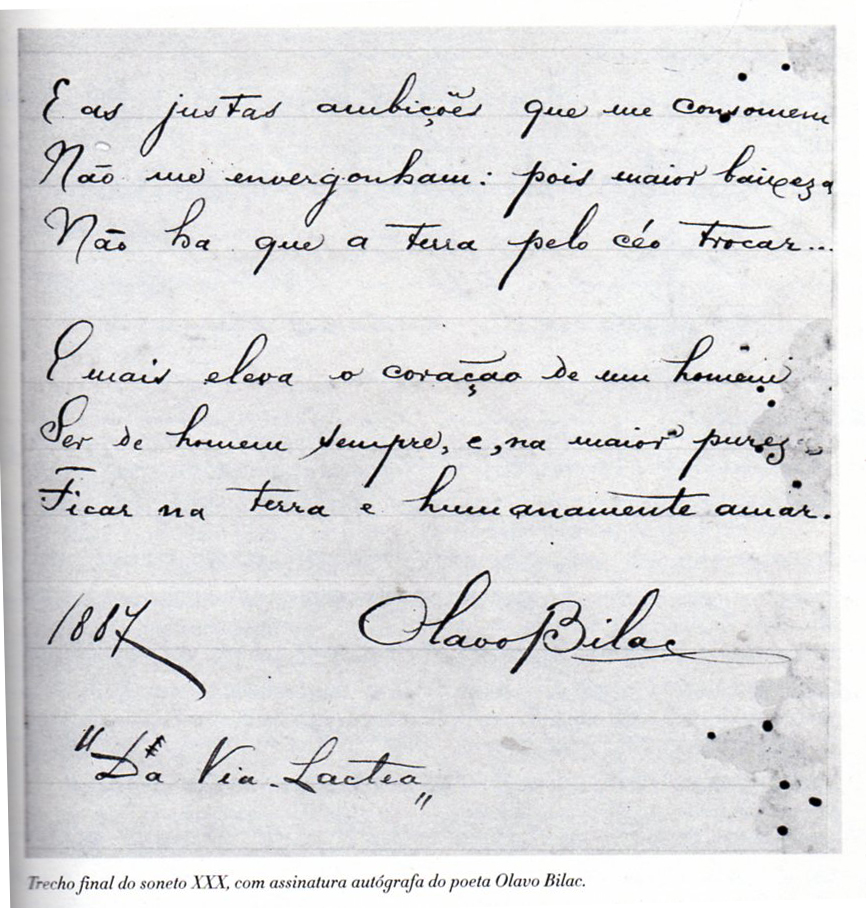 E as justas ambições que me consomem
Não me envergonham: pois maior baixeza
Não ha que a terra pelo céo trocar...
E mais eleva o coração de um homem
Ser de homem sempre, e, na maior pureza
Ficar na terra e humanamente amar.
1887 Olavo Bilac
"Da Via-Lactea"
Trecho final do soneto XXX, com assinatura autógrafa do poeta Olavo Bilac.